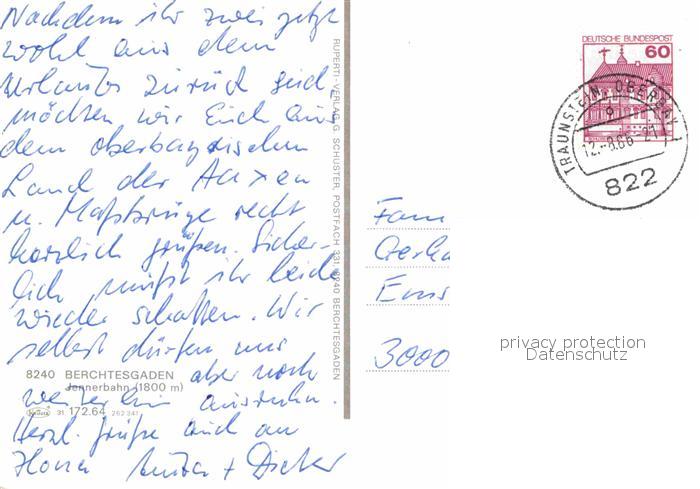 Nachdem ihr zwei jetzt
wohl aus dem
Urlaub zurück seid,
möchten wir Euch aus
dem oberbayrischen
Land der Haxen
u. Maßkrüge recht
herzlich grüßen. Sicher-
lich müßt ihr beide
wieder schaffen. Wir
selbst dürfen uns
aber noch
weiterhin ausruhn.
Herzl. Grüße auch an
+ Dieter
8240 BERCHTESGADEN
Jennerbahn (1800 m)
31 172.64 262 341
RUPERTI-VERLAG G. SCHUSTER, POSTFACH 331, 8240 BERCHTESGADEN
DEUTSCHE BUNDESPOST
60
TRAUNSTEIN, OBERBAY
12.-8.86-21
822
Fam
Gerha
Ems
3000
privacy protection
Datenschutz